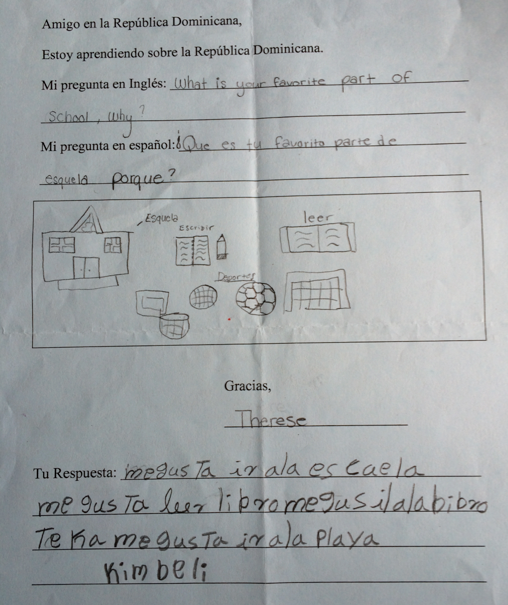 Amigo en la República Dominicana,
Estoy aprendiendo sobre la República Dominicana.
Mi pregunta en Inglés: What is your favorite part of
school, why?
Mi pregunta en español: ¿Que es tu favorito parte de
esquela porque?
Esquela
Escribir
leer
Deportes
Gracias,
Therese
Tu Respuesta: me gusTa ir ala es Caela
me gusTa leer libro me gus il ala bibro
Te Ka me gusTa ir ala Playa
Kimbeli